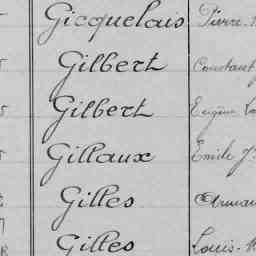 Gicquelais Pierre
Gilbert Constant
Gilbert Eugène
Gillaux Emile
Gilles
Gilles Louis